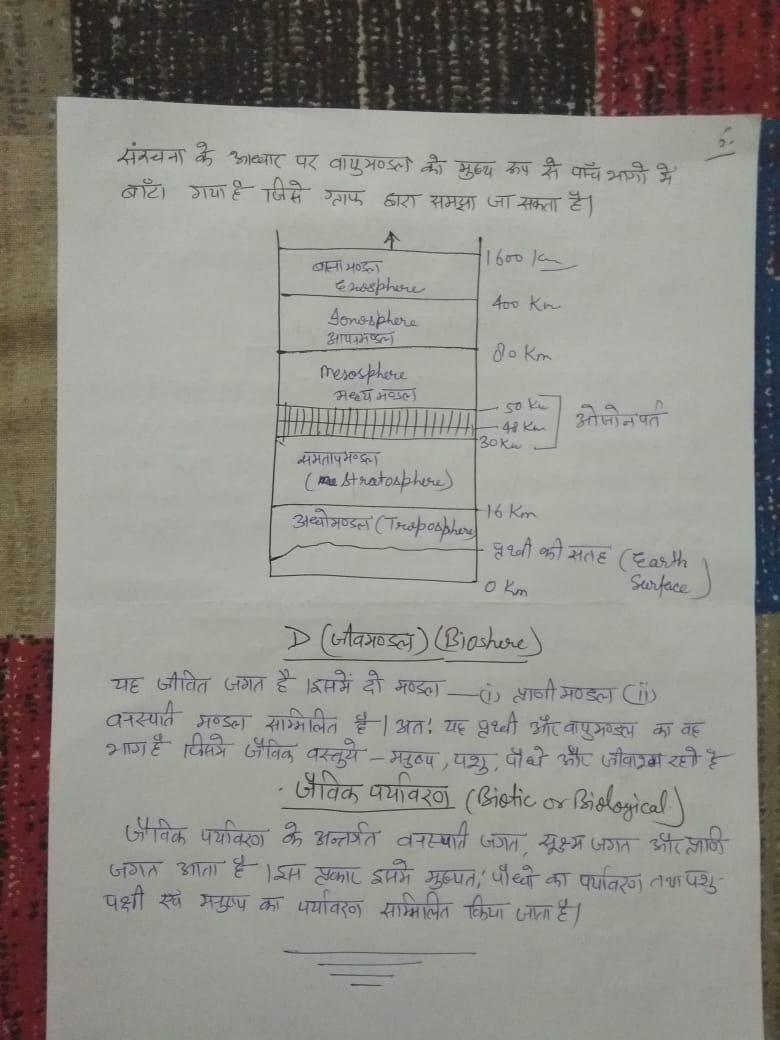 5.
संरचना के आधार पर वायुमण्डल को मुख्य रूप से पाँच भागो मे
बाँटा गया है जिसे ग्राफ द्वारा समझा जा सकता है।
1600 Km
Exosphere
400 Km
Ionosphere
आयनमण्डल
80 Km
Mesosphere
मध्य मण्डल
50 Km
48 Km
ओजोन पर्त
30 Km
समतापमण्डल
(Stratosphere)
16 Km
अधोमण्डल (Troposphere)
पृथ्वी की सतह (Earth
Surface)
0 Km
D (जीवमण्डल) (Bioshere)
यह जीवित जगत है। इसमें दो मण्डल —(i) प्राणी मण्डल (ii)
वनस्पति मण्डल सम्मिलित है। अत: यह पृथ्वी और वायुमण्डल का वह
भाग है जिसमे जैविक वस्तुये – मनुष्य, पशु, पौधे और जीवाश्म रहते है
जैविक पर्यावरण (Biotic or Biological)
जैविक पर्यावरण के अन्तर्गत वनस्पति जगत, सूक्ष्म जगत और प्राणि
जगत आता है। इस प्रकार इसमे मुख्यत: पौधो का पर्यावरण तथा पशु-
पक्षी एवं मनुष्य का पर्यावरण सम्मिलित किया जाता है।